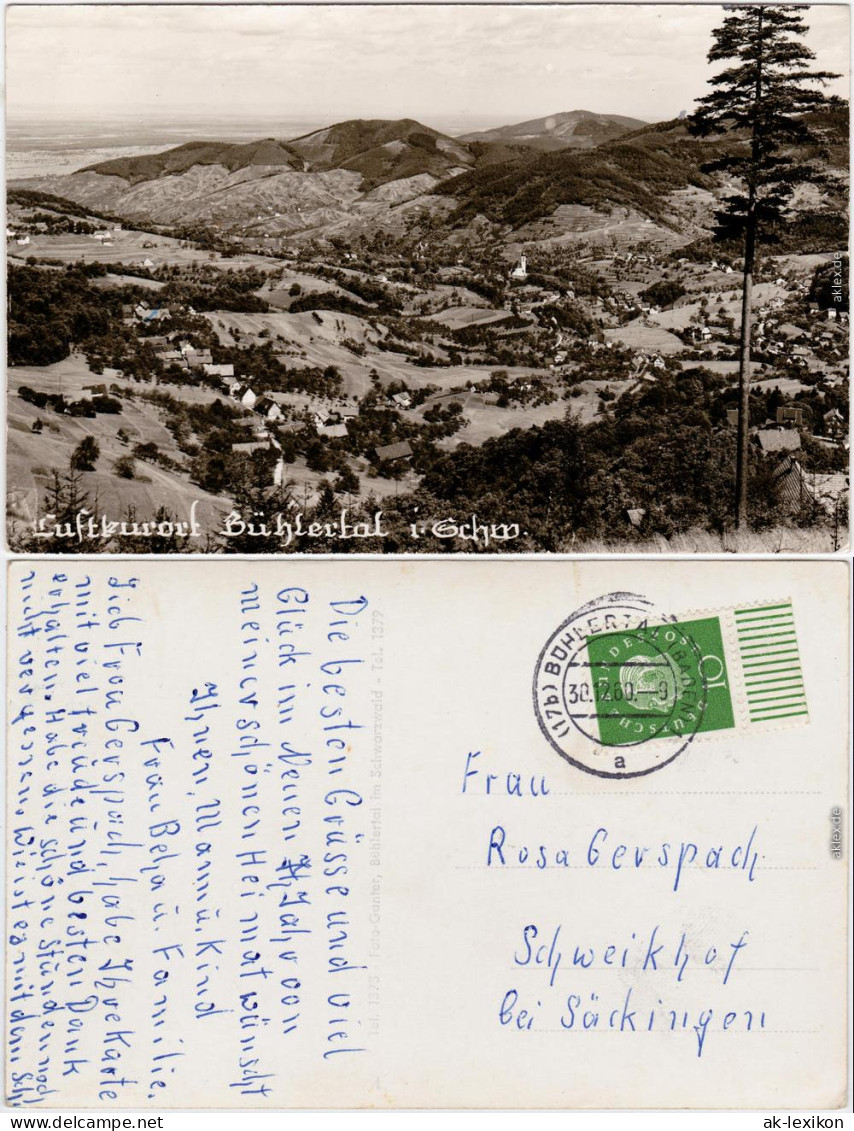 Luftkurort Bühlertal i. Schw.
Die besten Grüsse und viel
Glück im Neuen Jahr von
meiner schönen Heimat wünscht
Ihnen, Mann u. Kind
Frau Beha u. Familie.
Lieb Frau Gerspach, habe Ihre Karte
mit viel freude und besten Dank
erhalten. Habe die schöne Stunden noch
nicht vergessen. Wie ist es mit dem
Tel. 1373 Foto-Gunter, Bühlertal im Schwarzwald - Tel. 1379
(17b) BÜHLERTAL (BADEN)
30.12.60.--9
a
DEUTSCHE BUNDESPOST
10
Frau
Rosa Gerspach
Schweikhof
bei Säckingen
aklex.de
aklex.de
www.delcampe.net
ak-lexikon